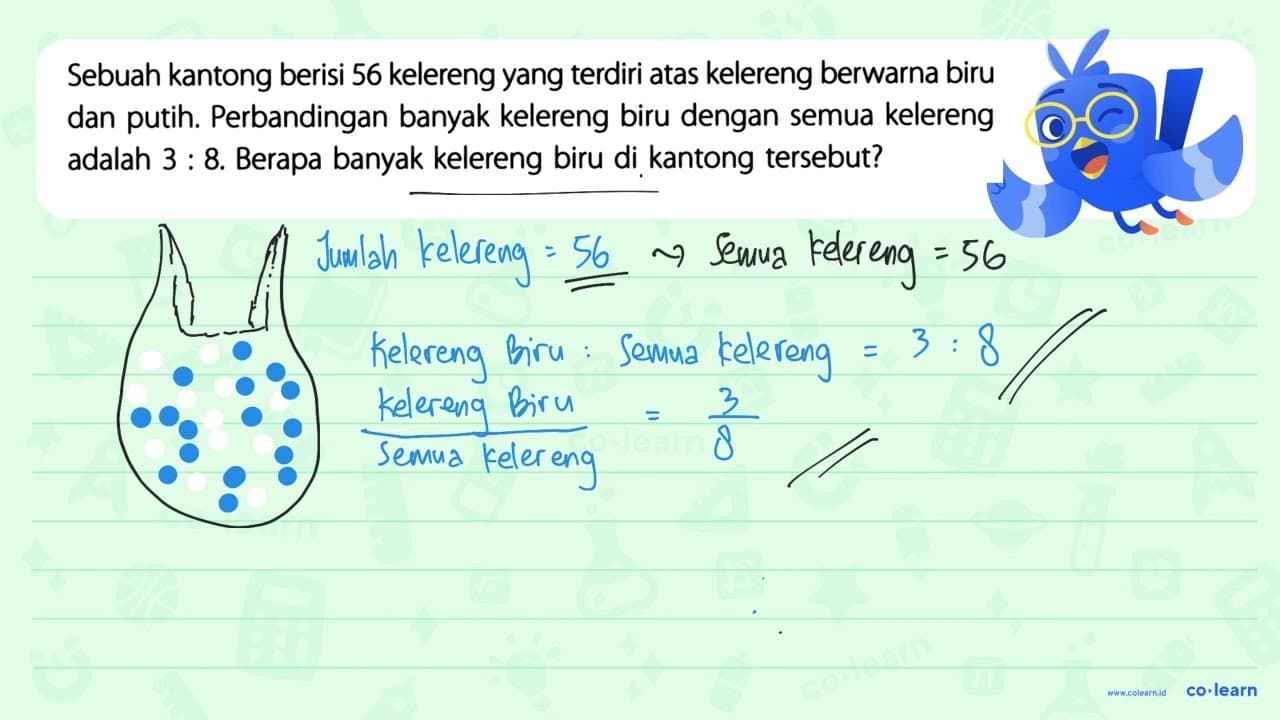 Sebuah kantong berisi 56 kelereng yang terdiri atas kelereng berwarna biru
dan putih. Perbandingan banyak kelereng biru dengan semua kelereng
adalah 3 : 8. Berapa banyak kelereng biru di kantong tersebut?
Jumlah kelereng = 56 ⤳ Semua kelereng = 56
Kelereng Biru : Semua kelereng = 3 : 8
kelereng Biru = 3
semua kelereng 8
co·learn
www.colearn.id co·learn